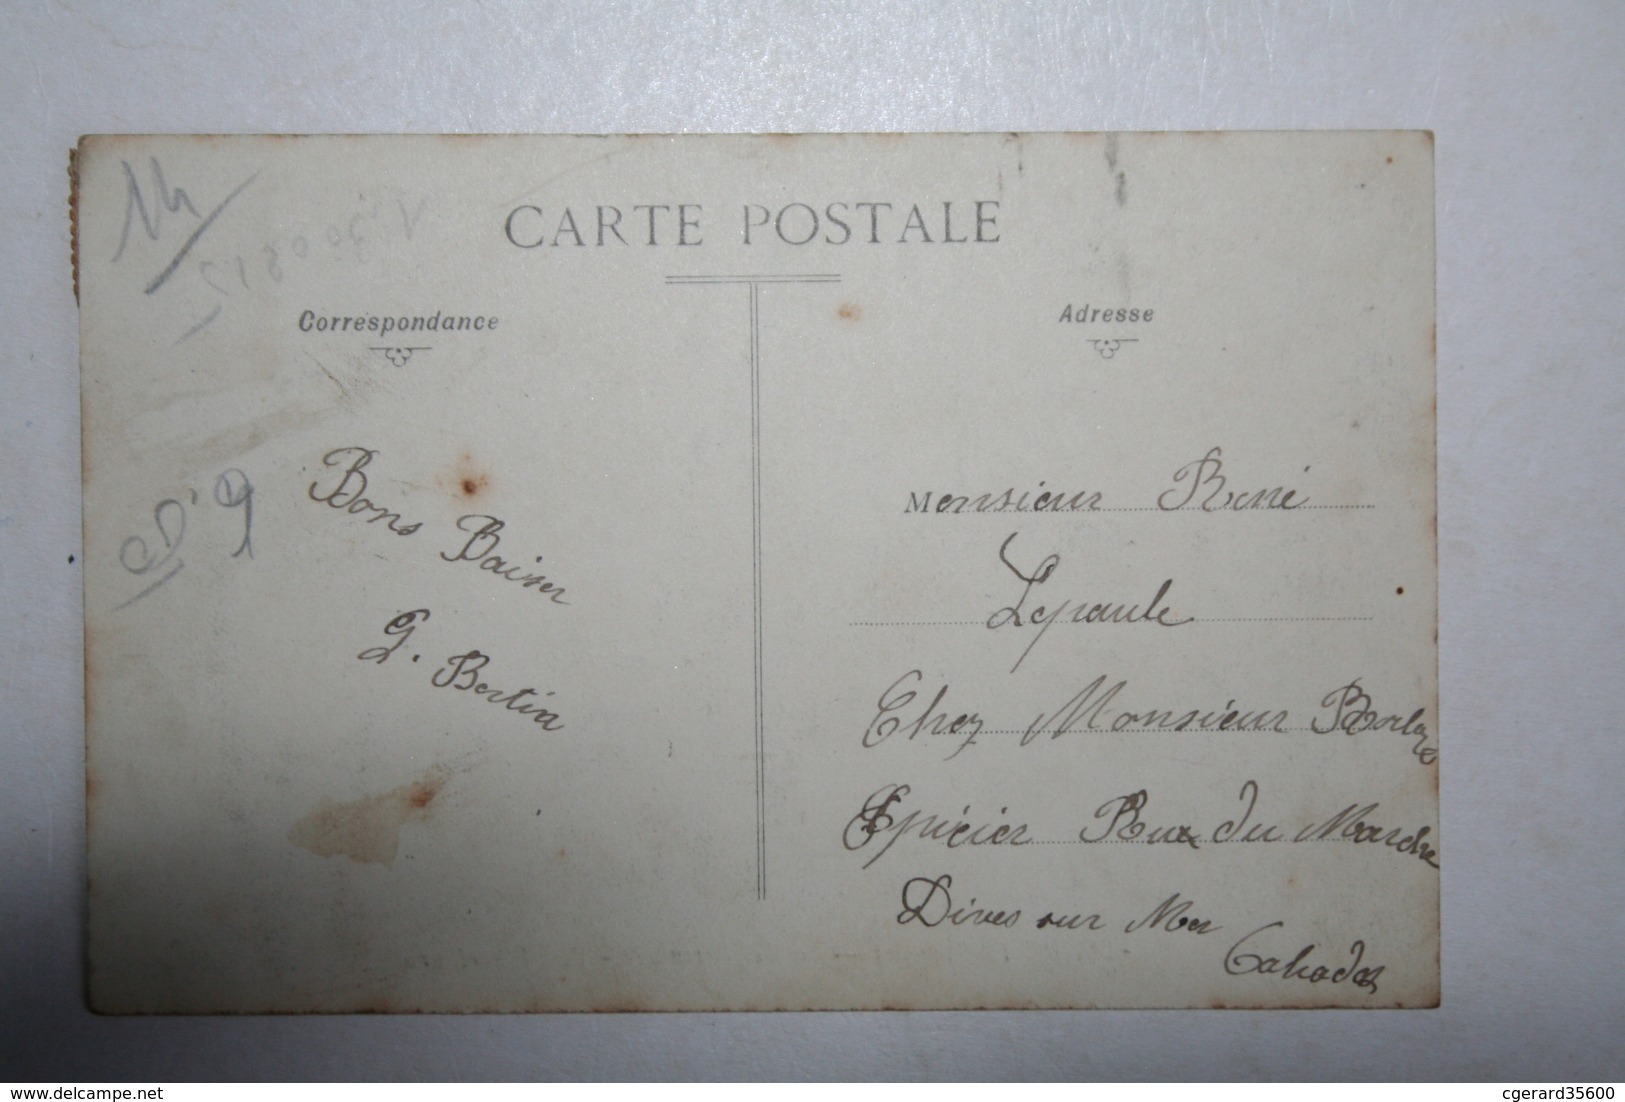 14
CARTE POSTALE
Correspondance
Adresse
Bons Baiser
G. Bertin
Monsieur René
Lepaule
Chez Monsieur
Epicier Rue du Marche
Dives sur Mer
Calvados
delcampe.net
cgerard35600